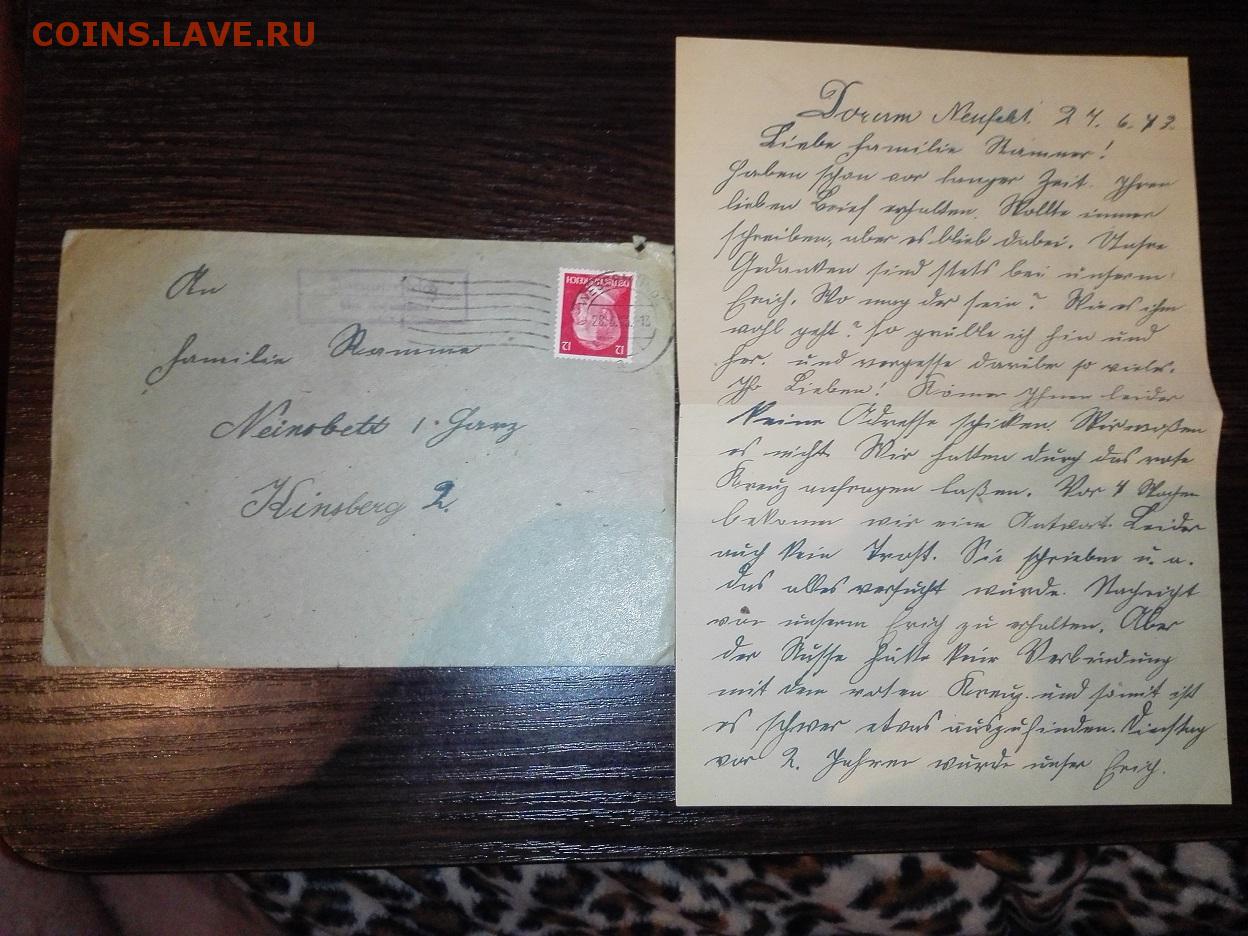 COINS.LAVE.RU
An
Familie Stamme
i. Harz
2.
DEUTSCHES REICH
12 12
Dorum Neufeld. 27. 6. 43.
Liebe Familie Stammer!
Haben schon vor langer Zeit. Ihren
lieben Brief erhalten. Wollte immer
schreiben, aber es blieb dabei. Unsre
Gedanken sind stets bei unserm
Erich. Wo mag der sein? Wie es ihm
wohl geht? So grüble ich hin und
her. und vergesse darüber so vieles.
Ihr Lieben! Können Ihnen leider
keine Adresse schicken. Wir
es nicht. Wir hatten durch das rote
Kreuz anfragen laßen. Vor 4 Wochen
bekamen wir eine Antwort. Leider
auch kein Trost. Sie schrieben u. a.
das alles versucht würde. Nachricht
von unserm Erich zu erhalten. Aber
der Russe hätte keine Verbindung
mit dem roten Kreuz. und somit ist
es schwer etwas auszufinden. Dienstag
vor 2. Jahren wurde unser Erich.